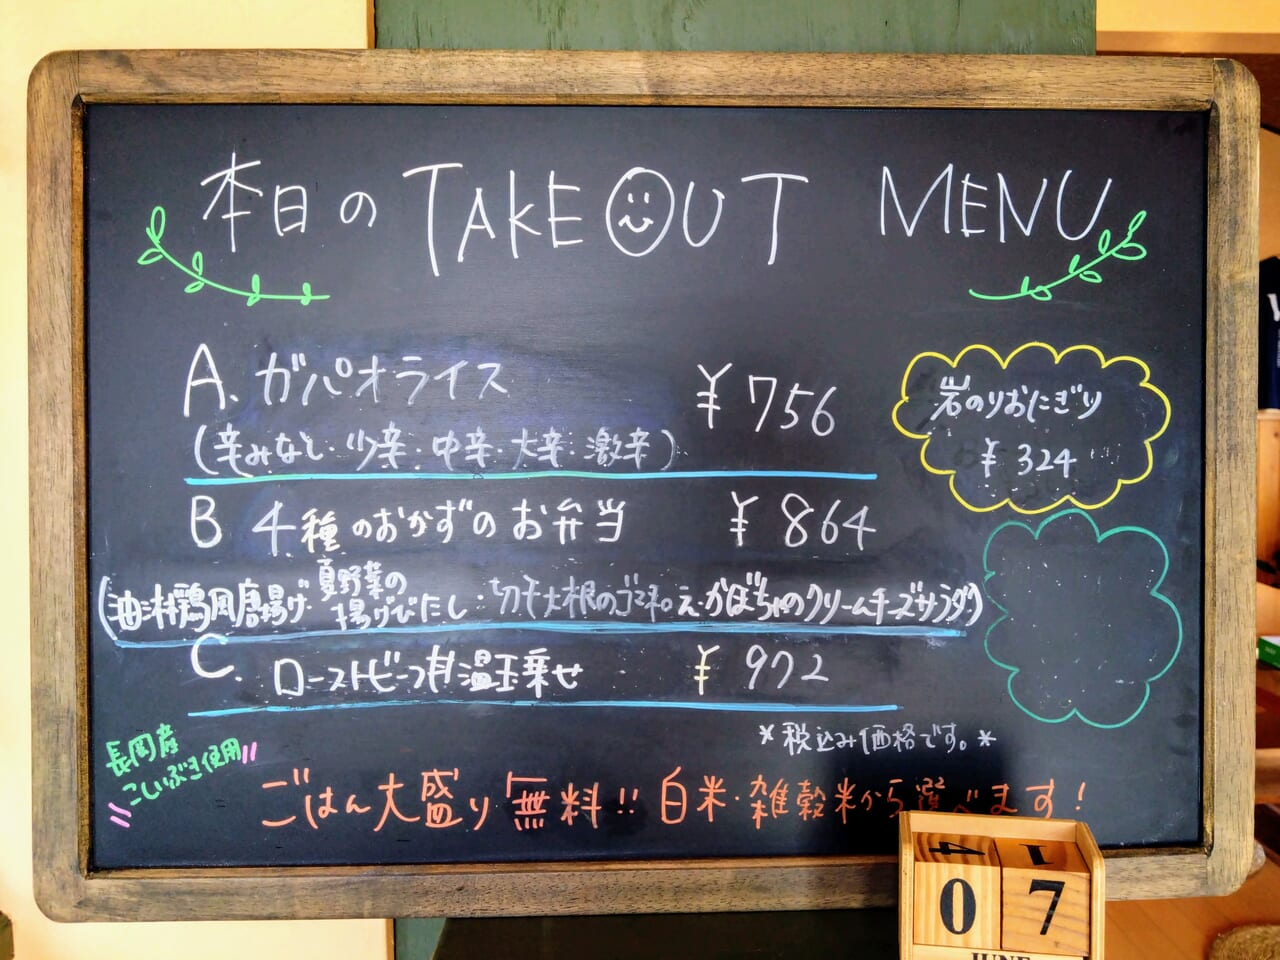 本日の TAKE OUT MENU
A. ガパオライス ¥756
(辛みなし・少辛・中辛・大辛・激辛)
岩のりおにぎり
¥324
B 4種のおかずのお弁当 ¥864
(油淋鶏風唐揚げ・夏野菜の揚げびたし・切干大根のゴマネ。え・かぼちゃのクリームチーズサラダ)
C. ローストビーフ丼温玉乗せ ¥972
*税込み価格です。*
長岡産
こしいぶき使用
ごはん大盛り無料!! 白米・雑穀米から選べます!
4 1
0 7
JUNE